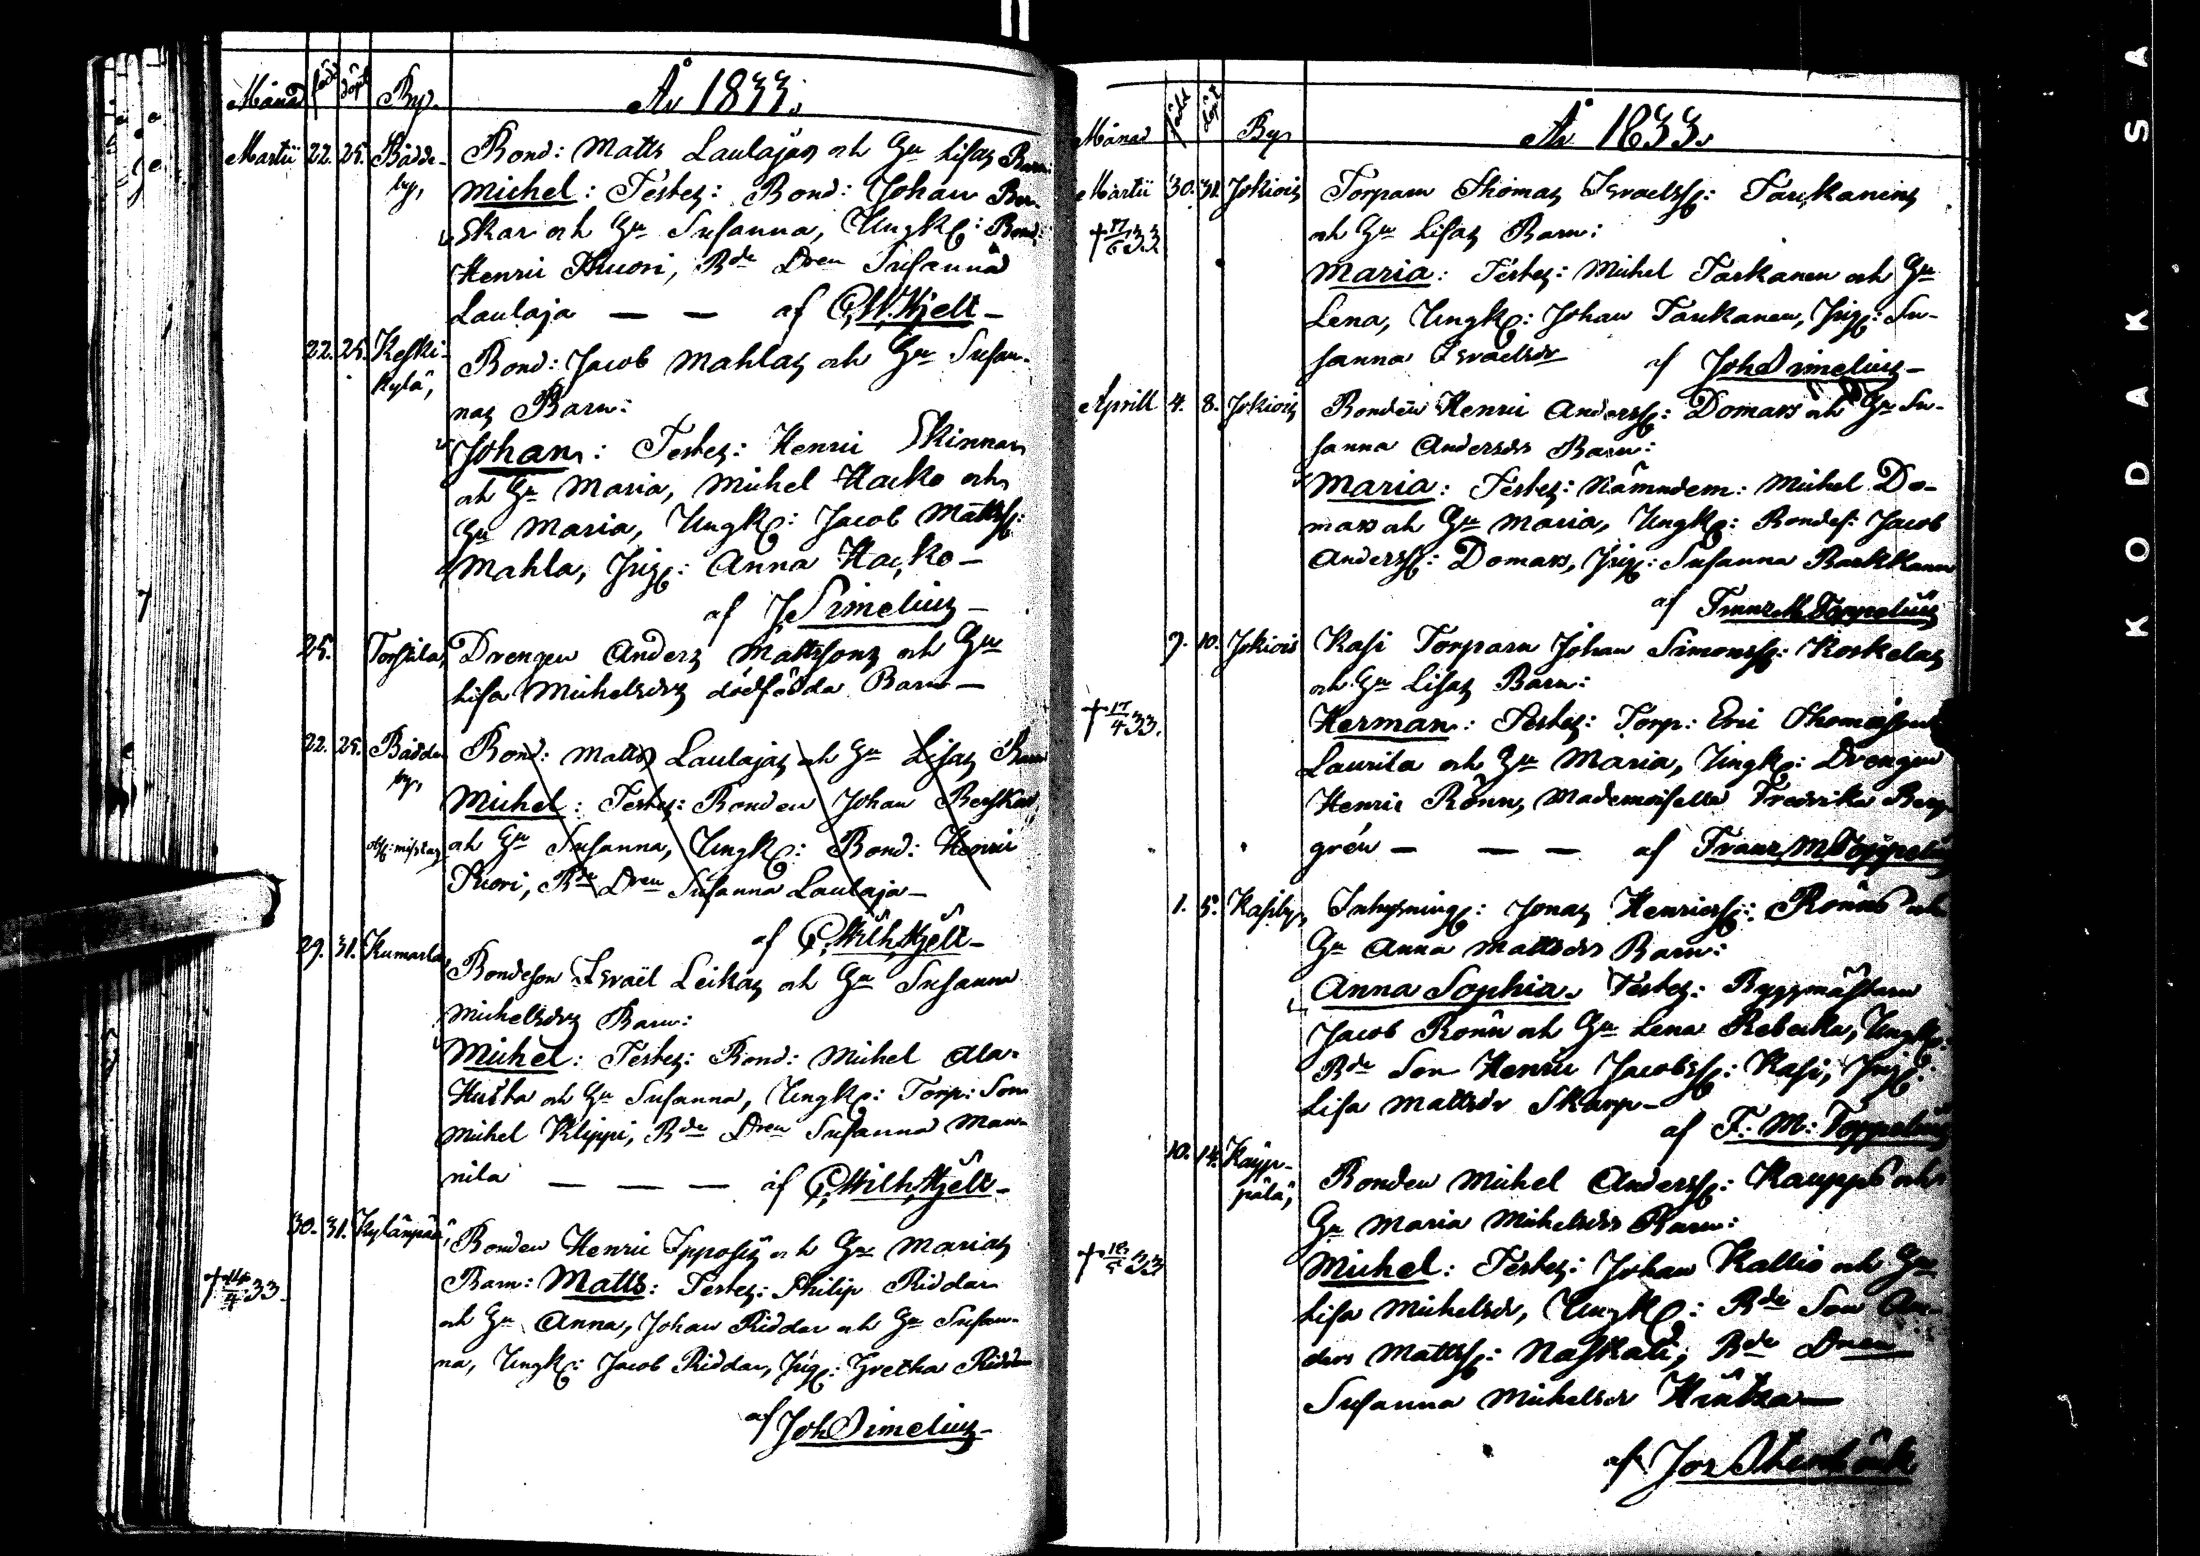 Månad född döpt By. År 1833.
Martii 22. 25. Bädde- Bond: Matts Laulajas och Hu Lisas Barn:
by, Michel: Testes: Bond: Johan Ber-
skar och Hu Susanna, Ungk: Bond:
Henric Knuori, Bde Dren Susanna
Laulaja — — af C,W,Hjelt —
22. 25. Keski- Bond: Jacob Mahlas och Hu Susan-
kylä, nas Barn:
Johan: Testes: Henric Skinnar
och Hu Maria, Michel Hacko och
Hu Maria, Ungk: Jacob Matts:
Mahla, Pig: Anna Hacko —
af J. Simelius —
25. Torstila, Drengen Anders Mattssons och Hu
Lisa Michelsdrs dödfödda Barn —
22. 25. Bädde Bond: Matts Laulajas och Hu Lisas Barn
by, Michel: Testes: Bonden Johan Berskar,
och Hu Susanna, Ungk: Bond: Henric
Kuori, Bde Dren Susanna Laulaja —
af C,Wilh,Hjelt —
29. 31. Kumarla, Bondeson Israël Leikas och Hu Susanna
Michelsdrs Barn:
Michel: Testes: Bond: Michel Ala-
Husta och Hu Susanna, Ungk: Torp: Son
Michel Klippi, Bde Dren Susanna Man-
nila — — — af C,Wilh,Hjelt —
30. 31. Kylänpää, Bonden Henric Ipposis och Hu Marias
Barn: Matts: Testes: Philip Riddar
† 4 33. och Hu Anna, Johan Riddar och Hu Susan-
na, Ungk: Jacob Riddar, Pig: Gretha Riddar
af Joh Simelius —
Månad född döpt By År 1833.
Martii 30. 31. Jokiois Torparn Thomas Israelss: Taukanens
† 6 33 och Hu Lisas Barn:
Maria: Testes: Michel Taukanen och Hu
Lena, Ungk: Johan Taukanen, Pig: Su-
sanna Israelsdr af Joh Simelius —
Aprill 4. 8. Jokiois Bonden Henric Anderss: Domars och Hu Su-
sanna Andersdrs Barn:
Maria: Testes: Nämndem: Michel Do-
mars och Hu Maria, Ungk: Bondes: Jacob
Anderss: Domars, Pig: Susanna
af Franz M Toppelius
7. 10. Jokiois Kasi Torparn Johan Simonss: Koskelas
och Hu Lisas Barn:
† 17/4 33. Herman: Testes: Torp: Eric Thomasson
Laurila och Hu Maria, Ungk: Drengen
Henric Rönn, Mademoiselle Fredrika Berg
grén — — — af Franz M Toppelius
1. 5. Kasiby, Inhysning: Jonas Henricss: Rönns och
Hu Anna Mattsdrs Barn:
Anna Sophia. Testes: Byggmästarn
Jacob Rönn och Hu Lena Rebecka, Ungk:
Bde Son Henric Jacobss: Kasi, Pig:
Lisa Mattsdr Skarp —
af F: M: Toppelius
10. 14. Kaup- Bonden Michel Anderss: Kaupps och
pälä, Hu Maria Michelsdrs Barn:
† 33 Michel: Testes: Johan Kallio och Hu
Lisa Michelsdr, Ungk: Bde Son An-
ders Mattss: Naskali, Bde Dren
Susanna Michelsdr Hintza —
af Jos
KODAK SA